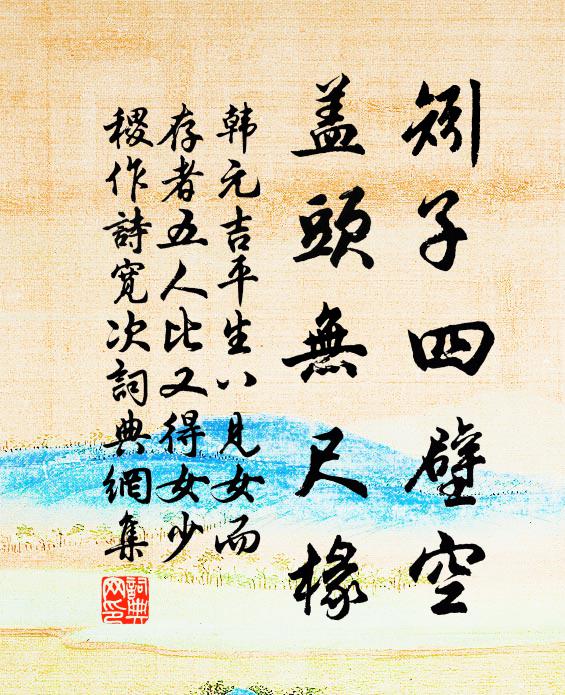 矧子四壁空
盖頭無尺椽
韓元吉平生八見女而
存者五人比又得女少
稷作詩寬次詞典網集
詞典
网印